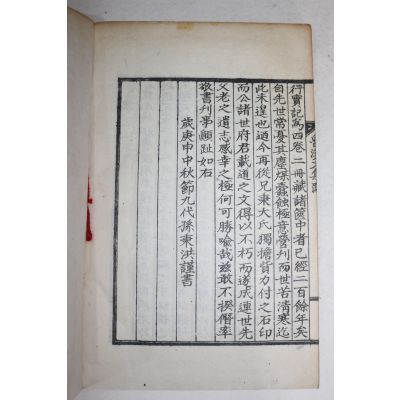 行實記爲四卷二冊藏諸篋中者已經二百餘年矣
自先世常憂其塵煤蠹蝕極意營刋而世苦清寒迄
此未遑也迺今再從兄秉大氏獨擔貲力付之石印
而公諸世府君載道之文得以不朽而遂成連世先
父老之遺志感幸之極何可勝喩哉玆敢不揆僭率
敬書刋事顚趾如右
歲庚申中秋節九代孫秉洪謹書